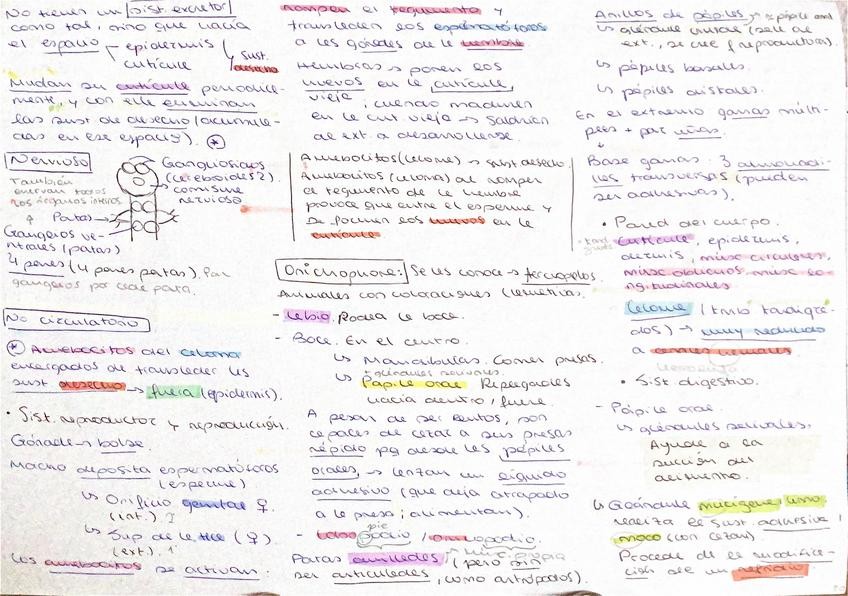 No tienen un sist excretor
como tal, sino que hacia
el espacio epidermis
cutícula
sust. desecho
Mudan su cutícula periodica-
mente, y con ella eliminan
las sust de desecho (acumula-
das en ese espacio). *
Nervioso
También
enervan todos
los órganos internos
Patas
Ganglios ve-
ntrales (patas)
4 pares (4 pares patas). Par
ganglios por cada pata.
Comisura
nerviosa
No circulatorio
* Amebocitos del celoma
encargados de transladar las
sust desecho → fuera (epidermis).
• Sist. reproductor y reproducción.
Gónada → bolsa.
Macho deposita espermatóforos
(esperma)
↳ Orificio genital ♀.
(int.)
↳ Sup de la ♀.
(ext.)
Los amebocitos se activan.
rompen el tegumento y
transladan los espermatóforos
a las gónadas de la hembra
Hembras → ponen los
huevos en la cutícula,
vieja, cuando maduren
en la cut. vieja → saldrán
al ext. a desarrollarse.
Amebocitos (celoma) → sust desecho.
Amebocitos (celoma) al romper
el tegumento de la hembra
provoca que entre el esperma y
se formen los huevos en la
cutícula
Onichophora: Se les conoce →
Animales con coloraciones llamativas.
- Labio. Rodea la boca.
- Boca. En el centro.
↳ Mandíbulas. Comer presas.
↳ Papila oral Replegadas
hacia dentro / fuera.
A pesar de ser lentos, son
capaces de cazar a sus presas
rápido pq desde las papilas
orales, → lanzan un líquido
adhesivo (que deja atrapado
a la presa; alimentan).
- Lobopodio /
pie
Patas anilladas (pero sin
ser articuladas, como artrópodos).
Anillos de papilas
ext., se cree (reproductora).
↳ papilas basales.
↳ papilas distales.
En el extremo garras múlti-
ples + par uñas.
Base garras: 3 almohadi-
llas transversas (pueden
ser adhesivas).
• Pared del cuerpo.
Cutícula, epidermis,
dermis, musc circulares,
musc oblicuos, musc lo-
ngitudinales
Celoma (como tardígra-
dos) → muy reducido
a
• Sist digestivo.
- Papila oral.
↳ glándulas salivales.
Ayuda a la
succión del
alimento.
↳ Glándula mucígena
realiza la sust. adhesiva /
moco (con cazan).
Procede de la modifica-
ción de un nefridio